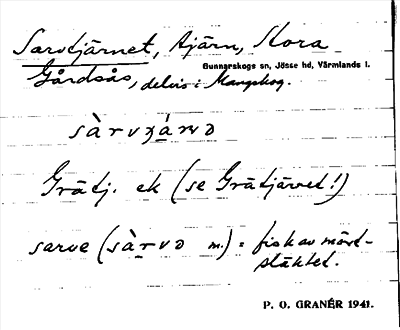 Sarvtjärnet, tjärn, Stora
Gunnarskogs sn, Jösse hd, Värmlands l.
Gårdsås, delvis i Mangskog.
sàrvʒánə
Grätj. ek (se Grätjärnet!)
sarve (sàrvə m.) = fisk av mört-
släktet.
P. O. GRANÉR 1941.